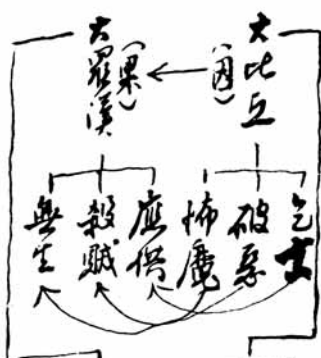 大比丘
(因)
大羅漢
(果)
乞士
破惡
怖魔
應供
殺賊
無生